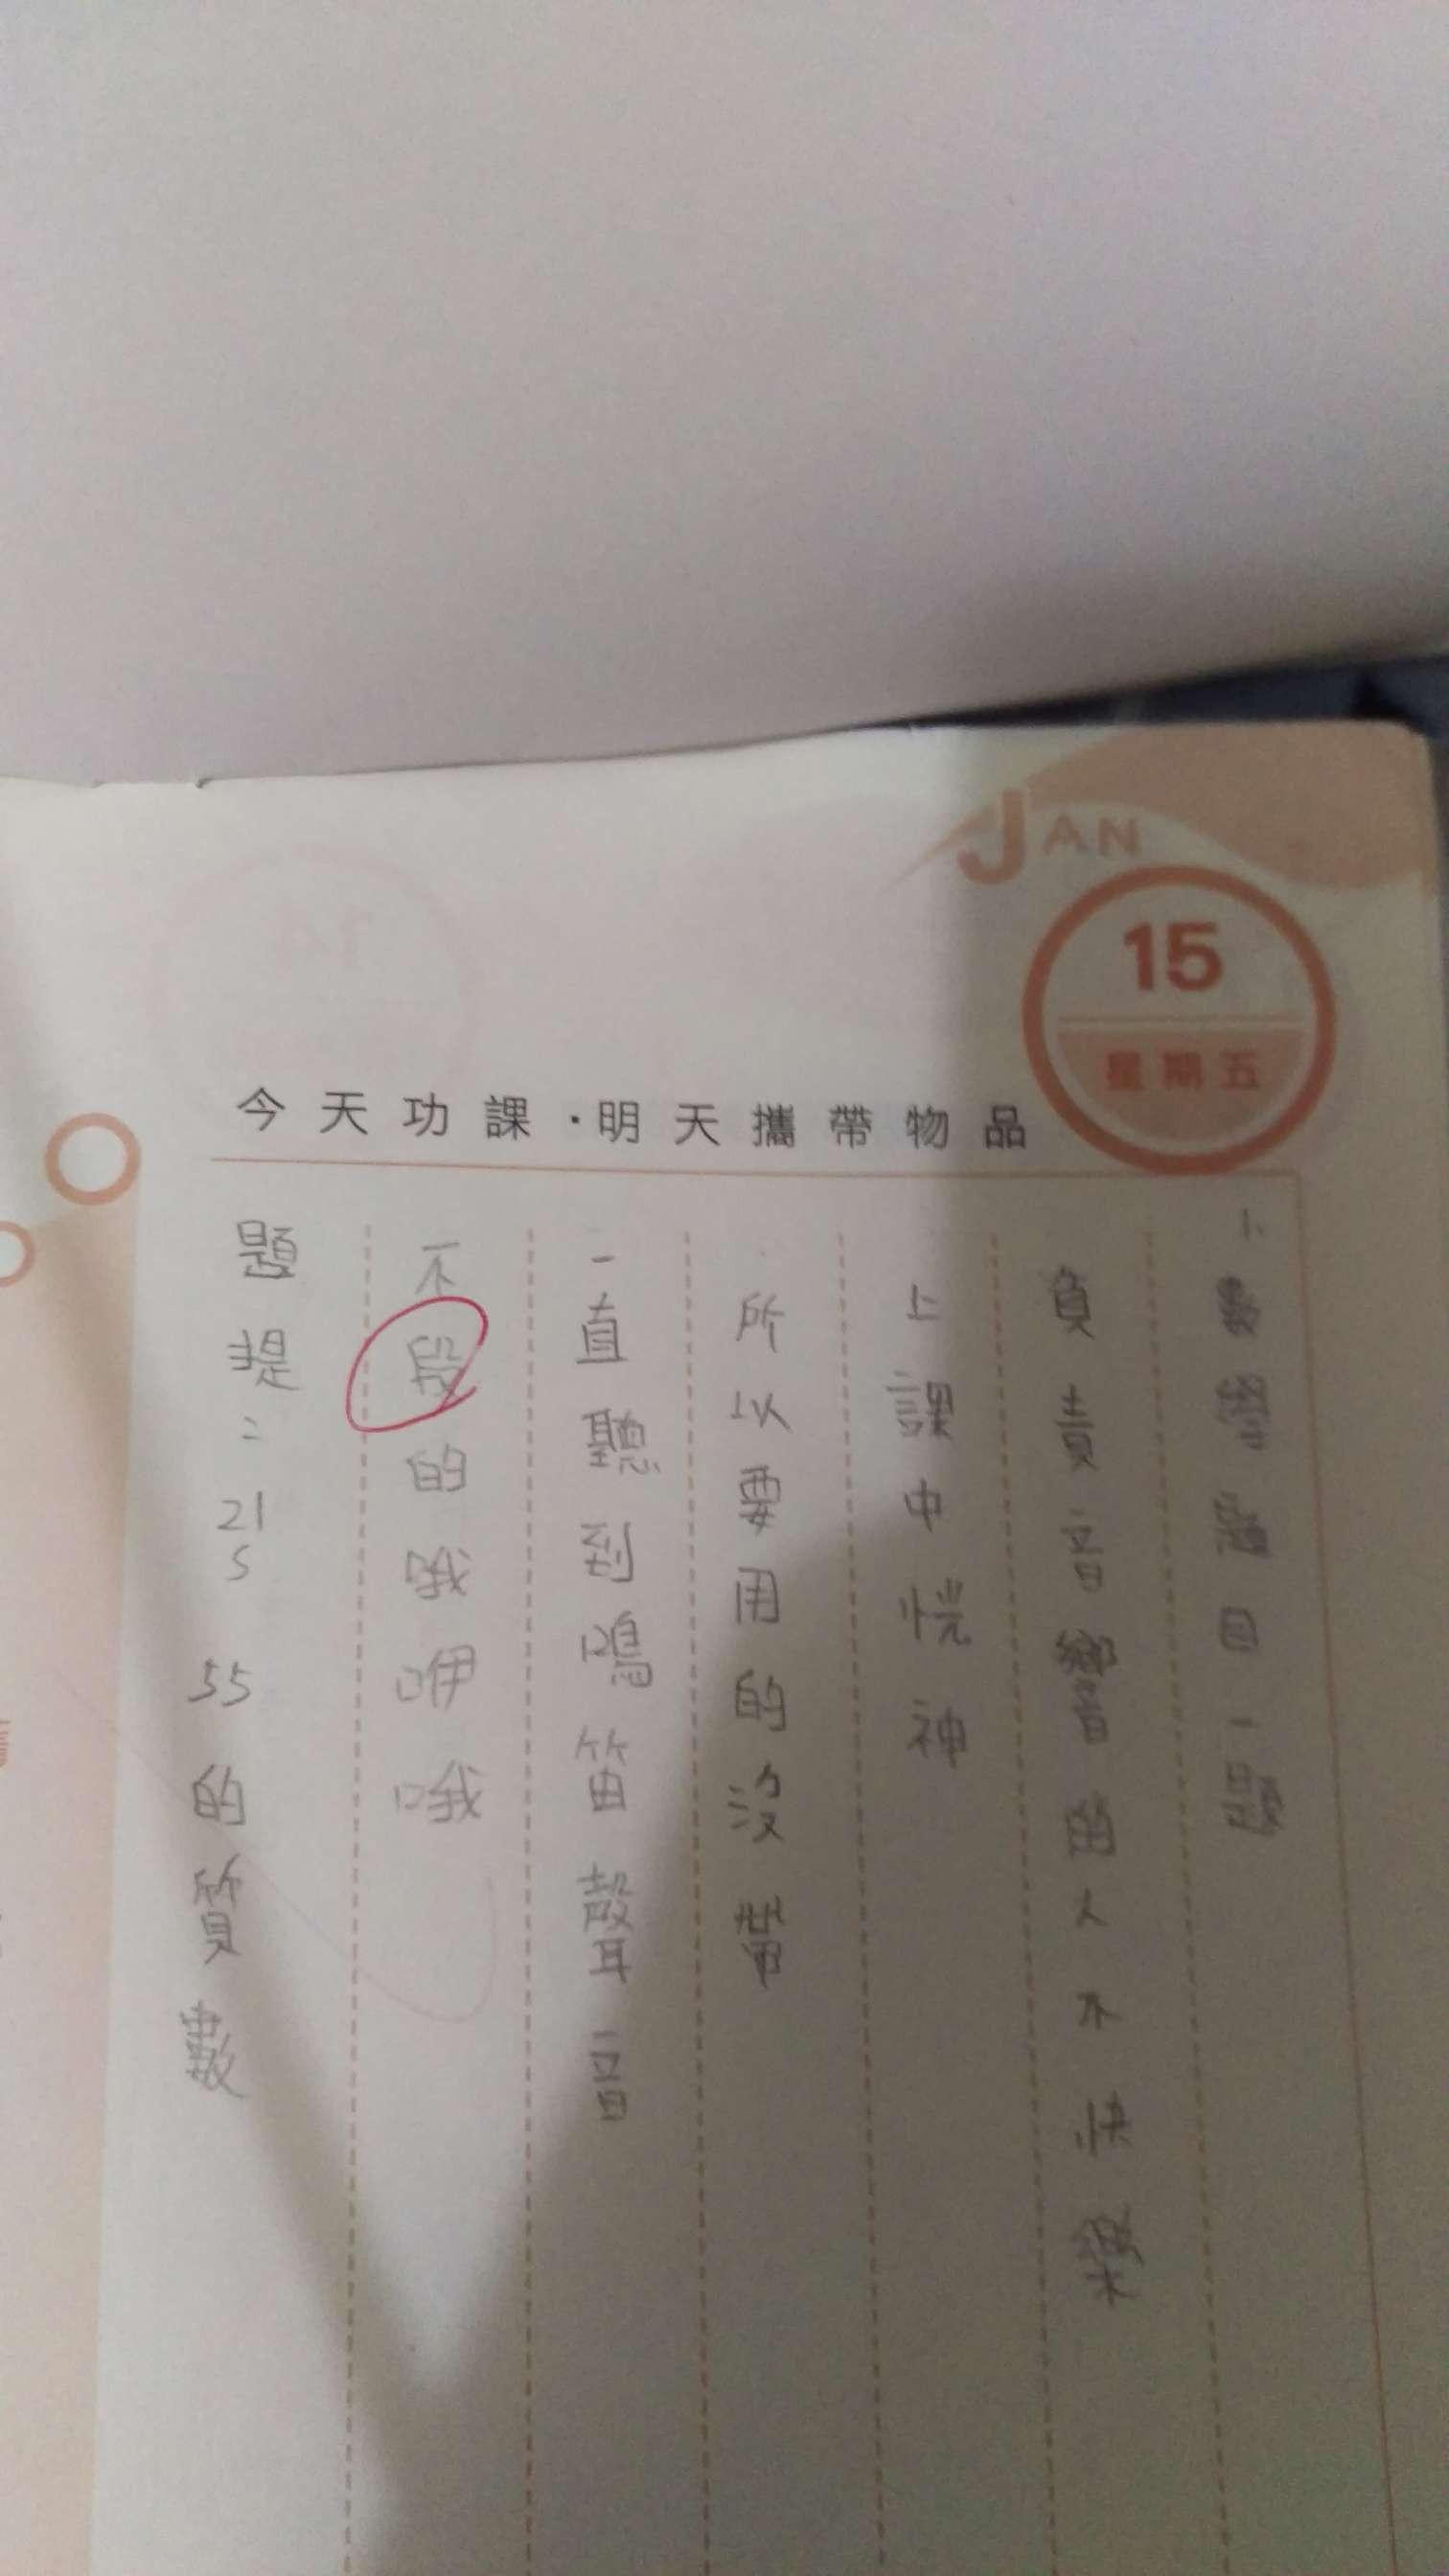 JAN
15
星期五
今天功課·明天攜帶物品
1、數學題目一題
負責音響的人不快樂
上課中恍神
所以要用的沒帶
一直聽到鳴笛聲音
不段的哦咿哦
題提：215 55的質數